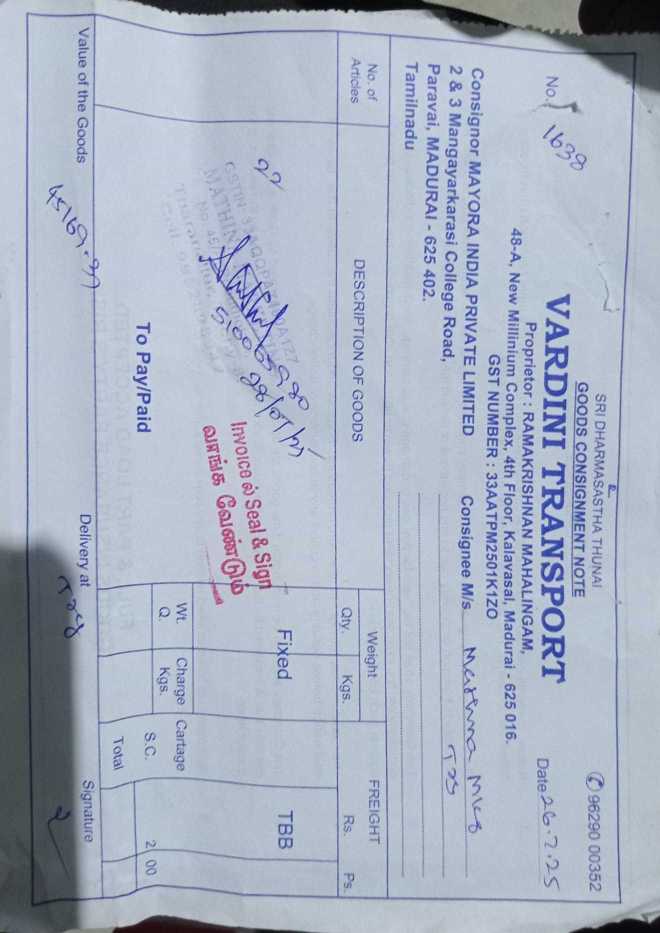 SRI DHARMASASTHA THUNAI
GOODS CONSIGNMENT NOTE
✆ 96290 00352
No. 1638
VARDINI TRANSPORT
Date 26.7.25
Proprietor : RAMAKRISHNAN MAHALINGAM,
48-A, New Millinium Complex, 4th Floor, Kalavasal, Madurai - 625 016.
GST NUMBER : 33AATPM2501K1ZO
Consignor MAYORA INDIA PRIVATE LIMITED
2 & 3 Mangayarkarasi College Road,
Paravai, MADURAI - 625 402.
Tamilnadu
Consignee M/s
No. of Articles
DESCRIPTION OF GOODS
Weight
Qty. Kgs.
FREIGHT
Rs. Ps.
22
Fixed
TBB
28/07/25
Invoice ல் Seal & Sign
வாங்க வேண்டும்
To Pay/Paid
Wt. Q.
Charge Kgs.
Cartage
S.C. 2 00
Total
Value of the Goods
Delivery at
Signature